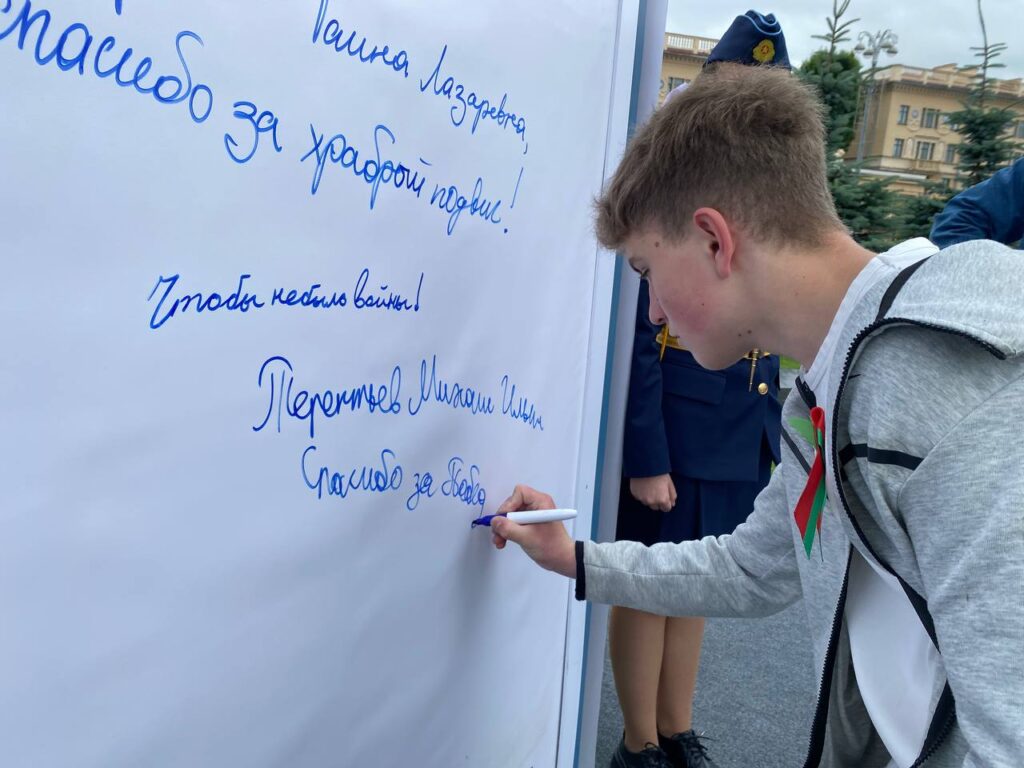 Галина Лазаревна,
Спасибо за храбрый подвиг!
Чтобы небыло войны!
Терентьев Михаил Ильич
Спасибо за Победу